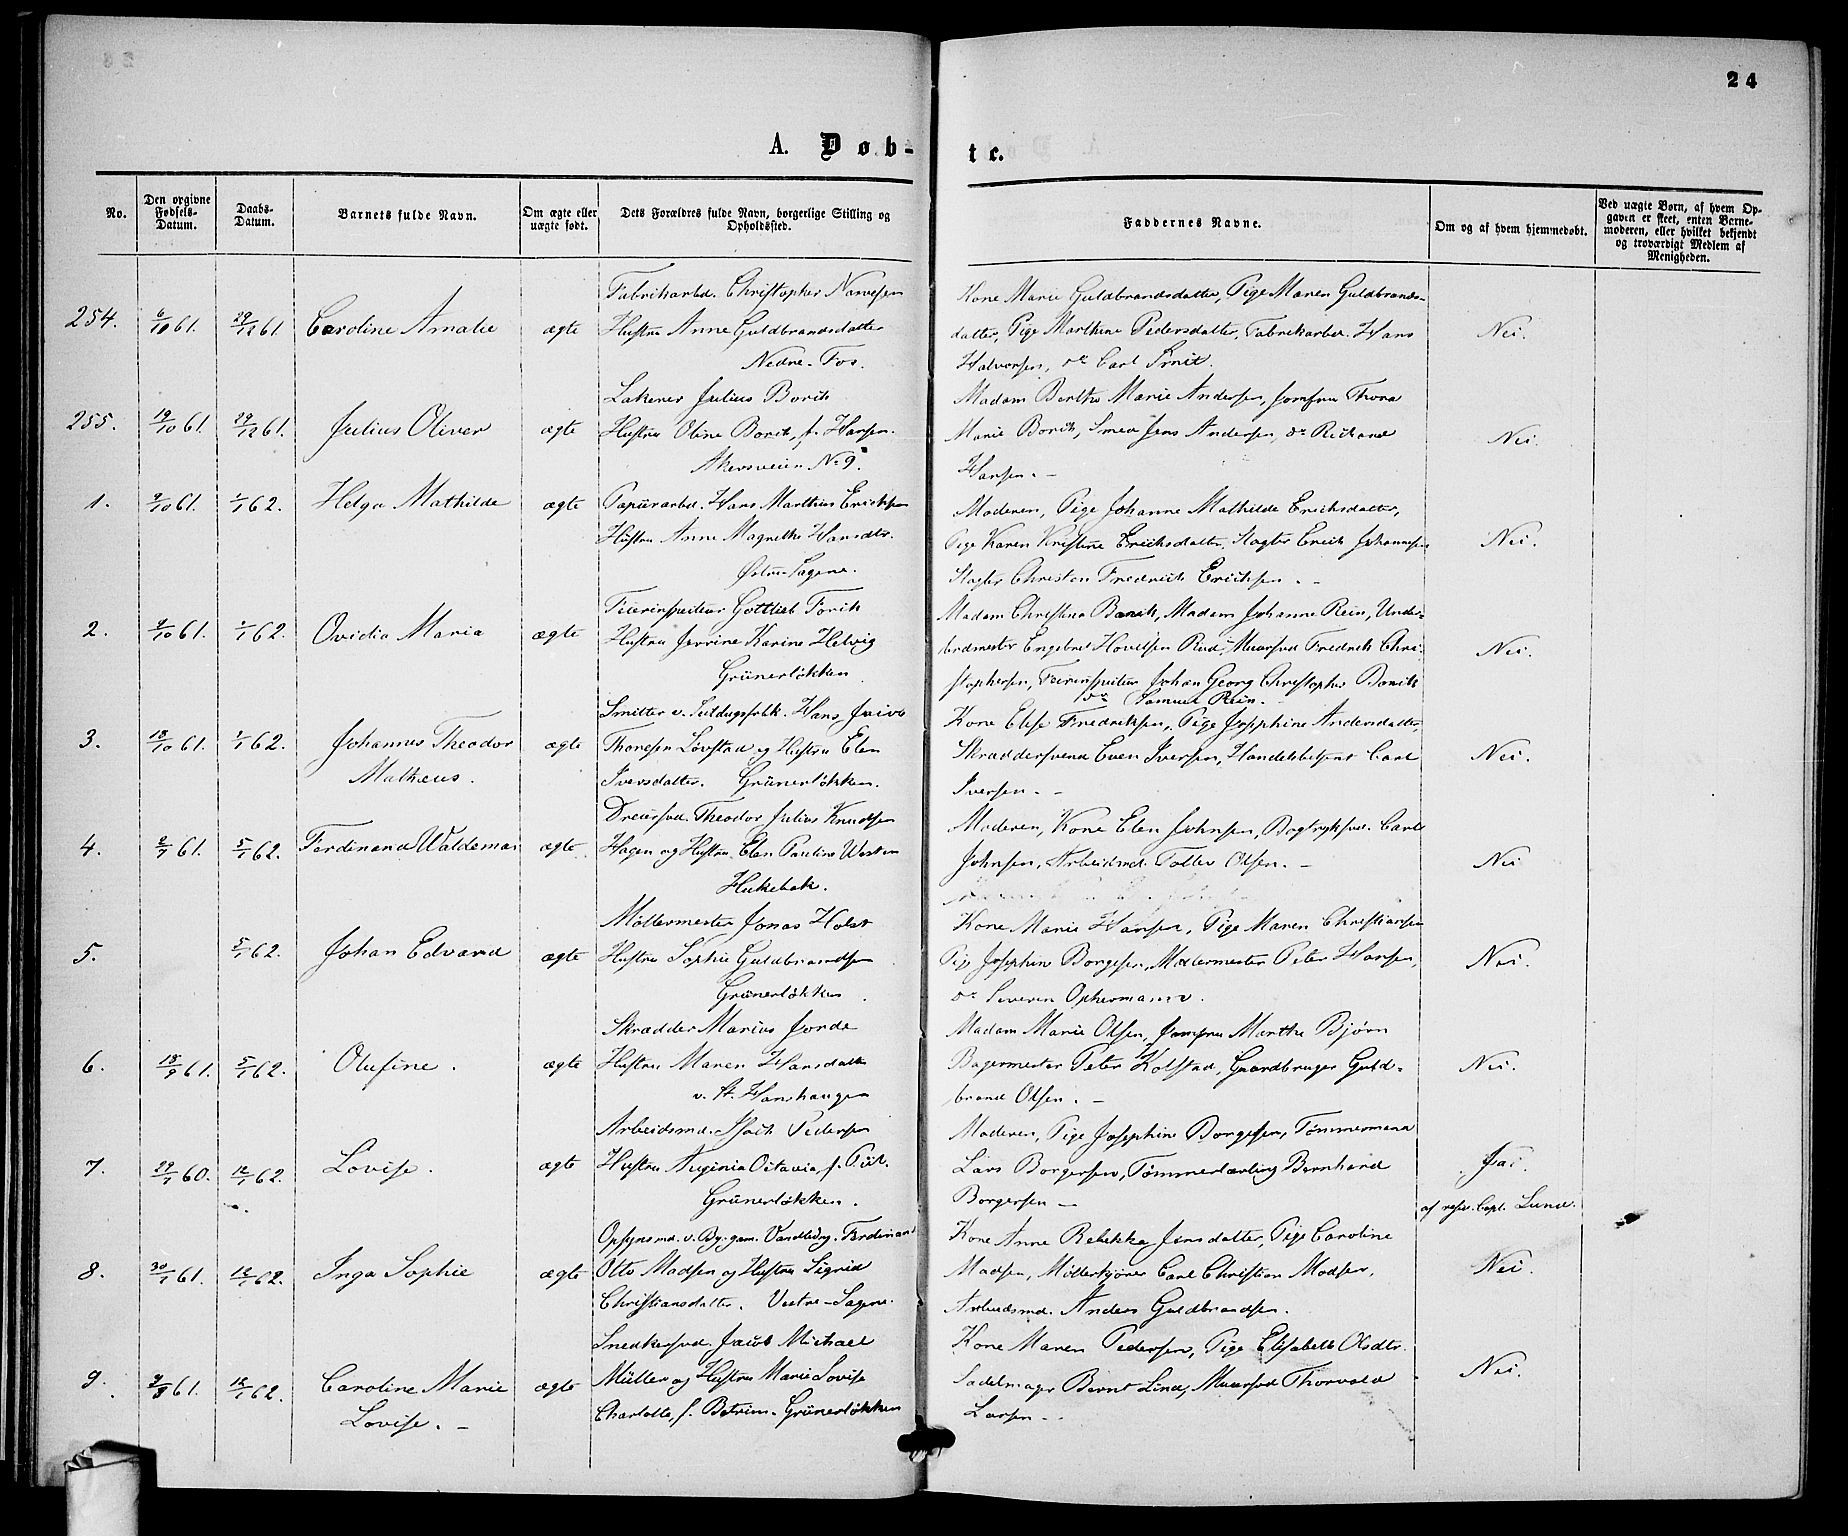 24
A. Døb-
te.
No.
Den opgivne Fødsels-Datum.
Daabs-Datum.
Barnets fulde Navn.
Om ægte eller uægte født.
Dets Forældres fulde Navn, borgerlige Stilling og Opholdssted.
Faddernes Navne.
Om og af hvem hjemmedøbt.
Ved uægte Børn, af hvem Opgaven er skeet, enten Barnemoderen, eller hvilket bekjendt og troværdigt Medlem af Menigheden.
Fabrikarbd. Christopher Narvesen
Kone Marie Guldbrandsdatter, Pige Maren Guldbrands-
254. 6/10 61. 29/12 61 Caroline Amalie ægte Hustru Anne Guldbrandsdatter
datter, Pige Marthine Pedersdatter, Fabrikarbd. Hans Nei.
Nedre-Fos.
Halvorsen, do Carl
Lakerer Julius Borch
Madam Berthe Marie Andersen, Jomfru Thora
255. 19/10 61. 29/12 61. Julius Oliver ægte Hustru Oline Borch, f. Hansen.
Marie Borch, Smed Jens Andersen, do Richard Nei.
Akersveien No 9.
Hansen. -
1. 9/10 61. 1/1 62. Helga Mathilde ægte Papiirarbd. Hans Marthius Erichsen
Moderen, Pige Johanne Mathilde Erichsdatter,
Hustru Anne Magrethe Hansdtr.
Pige Karen Kristine Erichsdatter, Slagter Erich Johannesen Nei.
Østre-Sagene.
Slagter Christen Fredrich Erichsen. -
Gottlieb
Madam Christina Borch, Madam Johanne Rein, Under-
2. 9/10 61. 1/1 62. Ovidia Maria ægte Hustru Karine Helvig
Engebret Hovelsen Rud, Muursvd Fredrik Chri- Nei.
Grünerløkken
stophersen, Johan Georg Christopher
do Samuel Rein. -
Hans Jacob
Kone Elise Fredriksen, Pige Josephine Andersdatter,
3. 18/10 61. 1/1 62. Johannes Theodor ægte Thoresen Løvstad og Hustru Elen
Skræddersvend Even Iversen, Handelsbetjent Carl Nei.
Matheus.
Iversdatter. Grünerløkken.
Iversen. -
Dreiersvd. Theodor Julius Knudsen
Moderen, Kone Elen Johnsen, Bogtryksvd. Carl
4. 2/7 61. 5/1 62. Ferdinand Waldemar ægte Hagen og Hustru Elen Pauline
Johnsen, Arbeidsmd. Tollev Olsen. - Nei
Hukebak.
Møllermester Jonas Holst
Kone Marie Hansen, Pige Maren Christiansen
5. 5/1 62. Johan Edvard ægte Hustru Sophie Guldbrandsen
Pige Josephine Borgesen, Møllermester Peter Hansen, Nei.
Grünerløkken
do Severin
Skrædder Marius Jorde
Madam Marie Olsen, Jomfru Marthe Bjørn
6. 18/9 61. 5/1 62. Olufine. ægte Hustru Maren Hansdatter
Bagermester Peter Kolstad, Gaardbruger Guld- Nei.
v. St. Hanshaugen
brand Olsen. -
Arbeidsmd. Isach Pedersen
Moderen, Pige Josephine Borgesen, Tømmermand
7. 29/1 60. 12/1 62. Lovise. ægte Hustru Octavia, f.
Lars Borgersen, Tømmerlærling Bernhard Ja.
Grünerløkken.
Borgersen - af resid. Capl. Lund.
Opsynsmd. v. Ferdinand
Kone Anne Rebekka Jensdatter, Pige Caroline
8. 30/1 61. 12/1 62. Inga Sophie ægte Otto Madsen og Hustru Sigrid
Madsen, Møllerkjører Carl Christian Madsen, Nei.
Christiansdatter. Vestre-Sagene.
Arbeidsmd. Anders Guldbrandsen.
Snedkersvd. Jacob Michael
Kone Maren Pedersen, Pige Elisabeth Olsdtr.
9. 9/8 61. 12/1 62. Caroline Marie ægte Müller og Hustru Marie Lovise
Sadelmager Bernt Lind, Muursvd Thorvald Nei.
Lovise. -
Charlotte, f. Grünerløkken
Larsen -